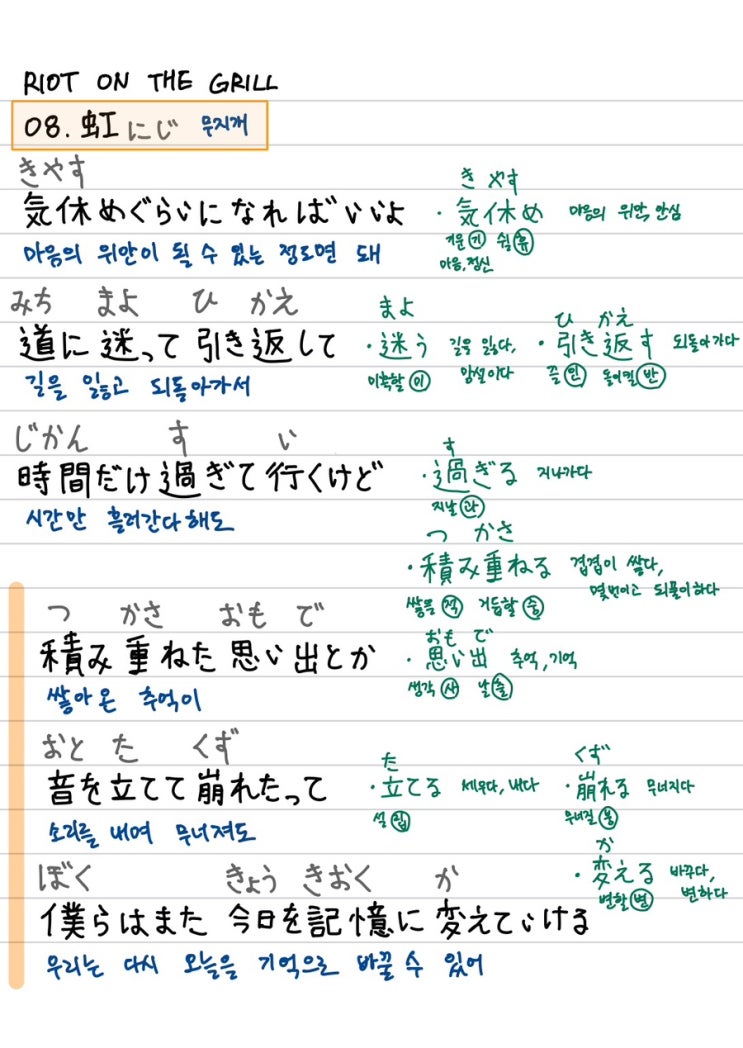 RIOT ON THE GRILL
08. 虹 にじ 무지개
きやす
気休めぐらいになればいいよ
마음의 위안이 될 수 있는 정도면 돼
き やす
・気休め 마음의 위안, 안심
기운 기 쉴 휴
마음, 정신
みち まよ ひ かえ
道に迷って引き返して
길을 잃고 되돌아가서
まよ
・迷う 길을 잃다, 망설이다
미혹할 미
ひ かえ
・引き返す 되돌아가다
끌 인 돌이킬 반
じかん す い
時間だけ過ぎて行くけど
시간만 흘러간다 해도
す
・過ぎる 지나가다
지날 과
つ かさ
・積み重ねる 겹겹이 쌓다,
몇번이고 되풀이하다
쌓을 적 거듭할 중
つ かさ おも で
積み重ねた思い出とか
쌓아온 추억이
おも で
・思い出 추억, 기억
생각 사 날 출
おと た くず
音を立てて崩れたって
소리를 내며 무너져도
た
・立てる 세우다, 내다
설 립
くず
・崩れる 무너지다
무너질 붕
ぼく きょう きおく か
僕らはまた今日を記憶に変えていける
우리는 다시 오늘을 기억으로 바꿀 수 있어
か
・変える 바꾸다,
변하다
변할 변